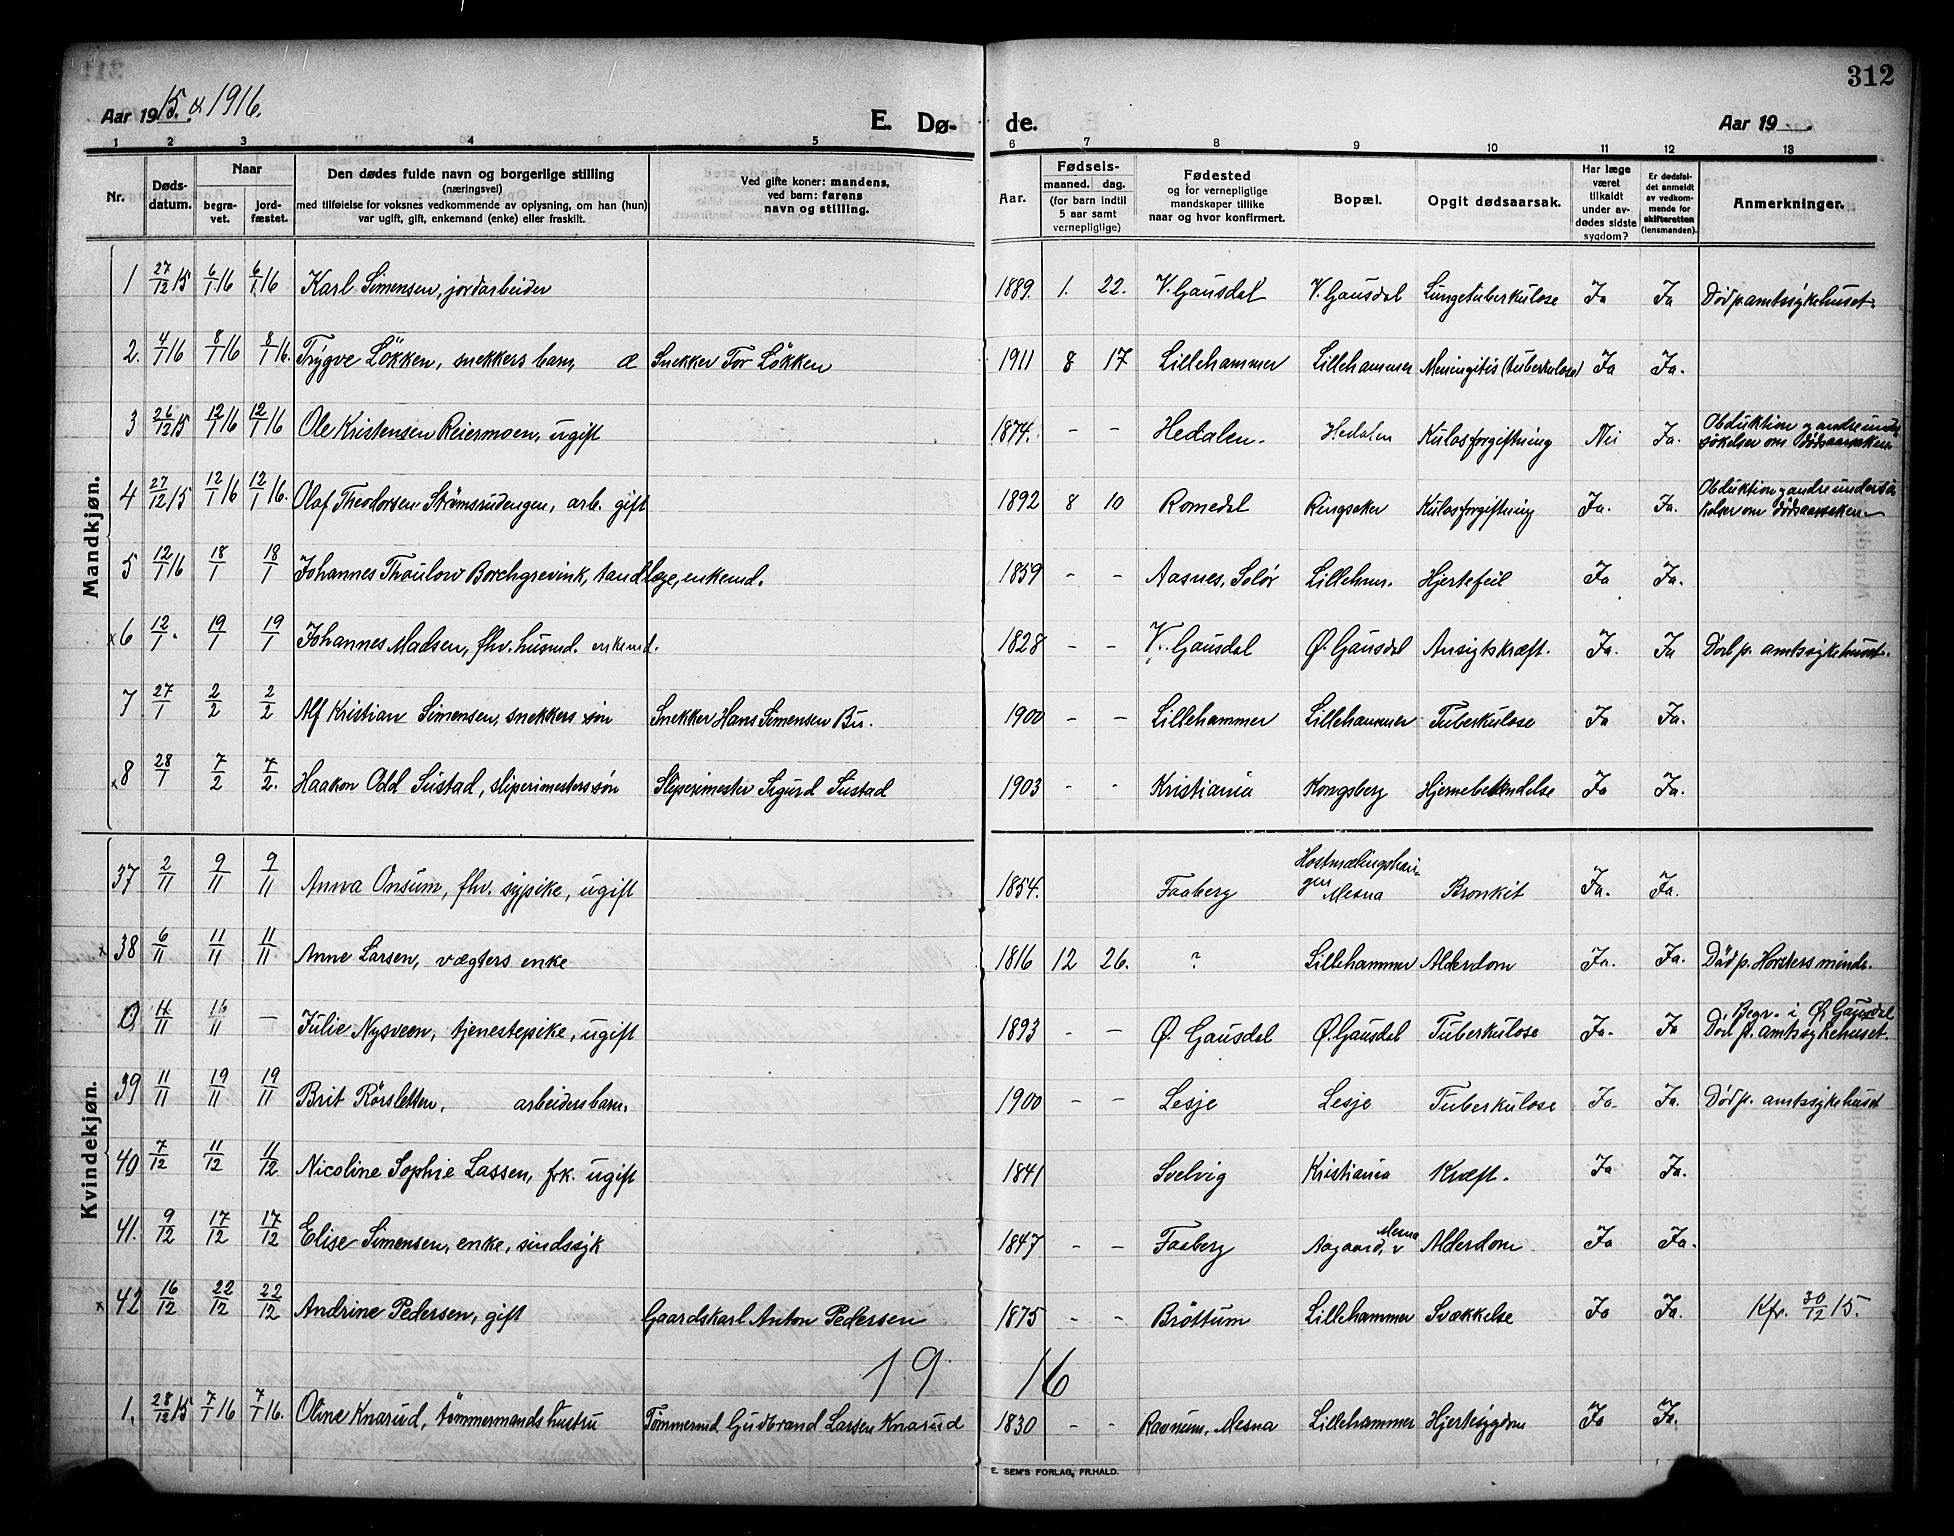 312
Aar 1915. & 1916.
E. Dø- de.
Aar 19
1 2 3 4 5 6 7 8 9 10 11 12 13
Nr. Døds-datum. Naar begra-vet. jord-fæstet. Den dødes fulde navn og borgerlige stilling (næringsvei) med tilføielse for voksnes vedkommende av oplysning, om han (hun) var ugift, gift, enkemand (enke) eller fraskilt. Ved gifte koner: mandens, ved barn: farens navn og stilling. Aar. Fødsels- maaned. dag. (for barn indtil 5 aar samt vernepligtige) Fødested og for vernepligtige mandskaper tillike naar og hvor konfirmert. Bopæl. Opgit dødsaarsak. Har læge været tilkaldt under av-dødes sidste sygdom? Er dødsfal-det anmeldt av vedkom-mende for skifteretten (lensmanden). Anmerkninger.
Mandkjøn.
1 27/12 15 6/1 16 6/1 16 Karl Simensen, jordarbeider 1889. 1. 22. V. Gausdal V. Gausdal Lungetuberkulose Ja Ja Død p. amtssykehuset.
2. 4/1 16 8/1 16 8/1 16. Trygve Løkken, snekkers barn, æ Snekker Tor Løkken 1911 8 17 Lillehammer Lillehammer Meningitis (tuberkulose) Ja Ja.
3 26/12 15 12/1 16 12/1 16 Ole Kristensen Reiermoen, ugift 1874. - - Hedalen. Hedalen Kulosforgiftning Nei Ja. Obduktion og andre under-søkelser om dødsaarsaken
4 27/12 15 12/1 16 12/1 16. Olaf Theodorsen Strømsrudengen, arb. gift 1892 8 10 Romedal Ringsaker Kulosforgiftning Ja. Ja. Obduktion og andre undersø-kelser om dødsaarsaken
5 12/1 16 18/1 18/1 Johannes Thaulow Borchgrevink, tandlæge, enkemd. 1859 - - Aasnes, Solør Lilleham. Hjertefeil Ja Ja.
x 6 12/1. 19/1 19/1 Johannes Madsen, fhv. husmd. enkemd. 1828 - - V. Gausdal Ø. Gausdal Ansigtskræft. Ja. Ja Død p. amtssykehuset.
7 27/1 2/2 2/2 Alf Kristian Simensen, snekkers søn Snekker Hans Simensen Bu. 1900 - - Lillehammer Lillehammer Tuberkulose Ja Ja.
x 8 28/1 7/2 7/2. Haakon Odd Sustad, sliperimesters søn Sliperimester Sigurd Sustad 1903 - - Kristiania Kongsberg Hjernebetendelse Ja Ja.
Kvindekjøn.
37 2/11 9/11 9/11 Anna Onsum, fhv. sypike, ugift 1854. Faaberg Mesna Bronkit Ja. Ja.
x 38 6/11 11/11 11/11 Anne Larsen, vægters enke 1816 12 26. ? Lillehammer Alderdom Ja. Ja. Död p. Horsters minde.
0 11/11 16/11 — Julie Nysveen, tjenestepike, ugift 1893 - - Ø. Gausdal Ø. Gausdal Tuberkulose Ja. Ja Begr. i Ø. Gausdal Död p. amtssykehuset.
39 11/11 19/11 19/11 Brit Rörsletten, arbeidersbarn. 1900 - - Lesje Lesje Tuberkulose Ja. Ja. Död p. amtssykehuset
40 7/12 11/12 11/12 Nicoline Sophie Lassen, frk. ugift 1841 Svelvig Kristiania Kræft. Ja Ja.
41. 9/12 17/12 17/12 Elise Simensen, enke, sindssyk 1847 - - Faaberg Aagaard, Mesna Alderdom Ja Ja.
x 42 16/12 22/12 22/12 Andrine Pedersen, gift Gaardskarl Anton Pedersen 1875 - - Brøttum Lillehammer Svækkelse Ja Ja. Kfr. 30/12 15.
19 16
1. 28/12 15 7/1 16 7/1 16. Oline Knarud, tömmermands hustru Tømmermd. Gudbrand Larsen Knarud 1830 - - Mesna Lillehammer Hjertesygdom Ja Ja.
E. SEM'S FORLAG, FR.HALD.